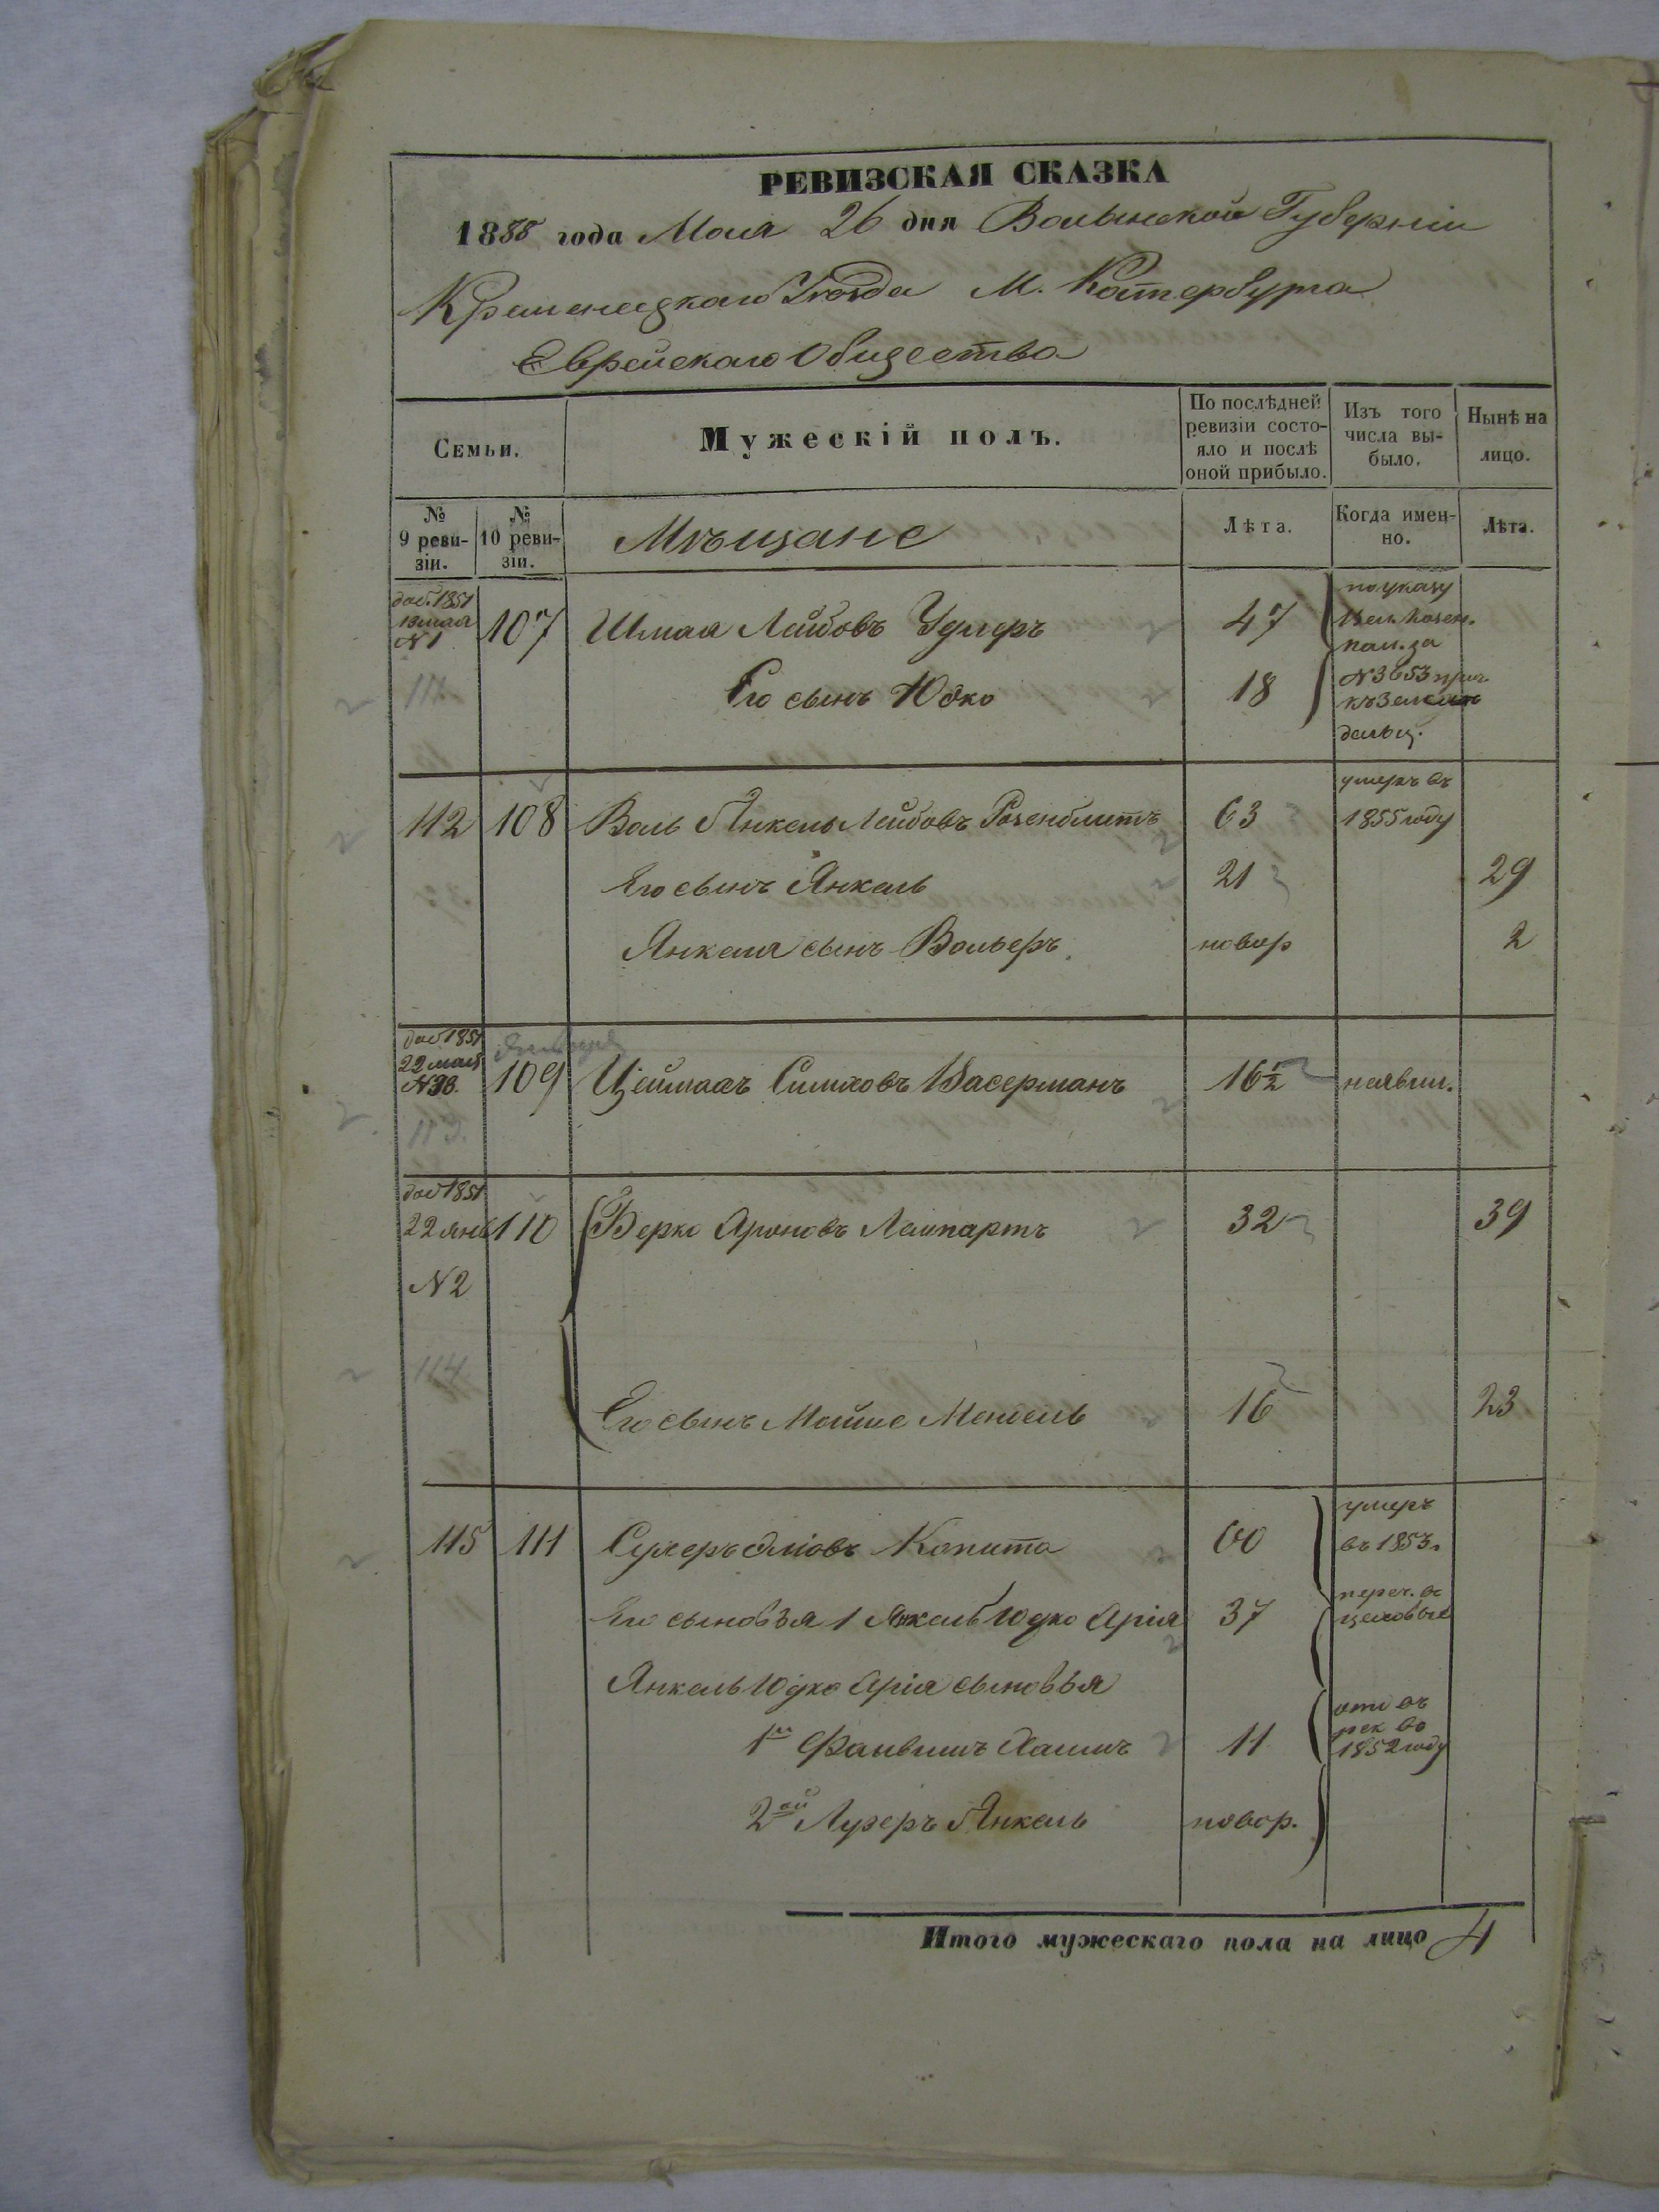 РЕВИЗСКАЯ СКАЗКА
1858 года Мая 26 дня Волынской Губерніи
Кременецкаго Уѣзда М. Катербурга
Еврейскаго Общества
Семьи.
Мужескій полъ.
По послѣдней ревизіи состо-
яло и послѣ
оной прибыло.
Изъ того
числа вы-
было.
Нынѣ на
лицо.
№
9 реви-
зіи.
№
10 реви-
зіи.
Мѣщане
Лѣта.
Когда имен-
но.
Лѣта.
доб. 1851
13 мая
N 1
107 Шмая Лейбовъ 47
по указу
казен.
пал. за
N 3653
112 Его сынъ Юдко 18
дѣльц.
112 108 Воль Янкель Лейбовъ Розенблитъ 63 умеръ въ
1855 году
Его сынъ Янкель 21 29
Янкеля сынъ Вольберъ новор 2
доб 1851
22 мая
N 28.
109 Цеймахъ Симховъ Васерманъ 16½ неявил.
113.
доб 1851
22 янв 110 Берко Ароновъ Лемпартъ 32 39
N 2
114
Его сынъ Мойше Мендель 16 23
115 111 Сухеръ Эліовъ Копита 60 умеръ
въ 1853 г
Его сыновья 1 Янкель Юдко Арія 37 переч. въ
цеховые
Янкель Юдко Арія сыновья
1й Файвишъ Хаимъ 11 отд въ
рек въ
1852 году
2ой Лузеръ Янкель новор.
Итого мужескаго пола на лицо 4